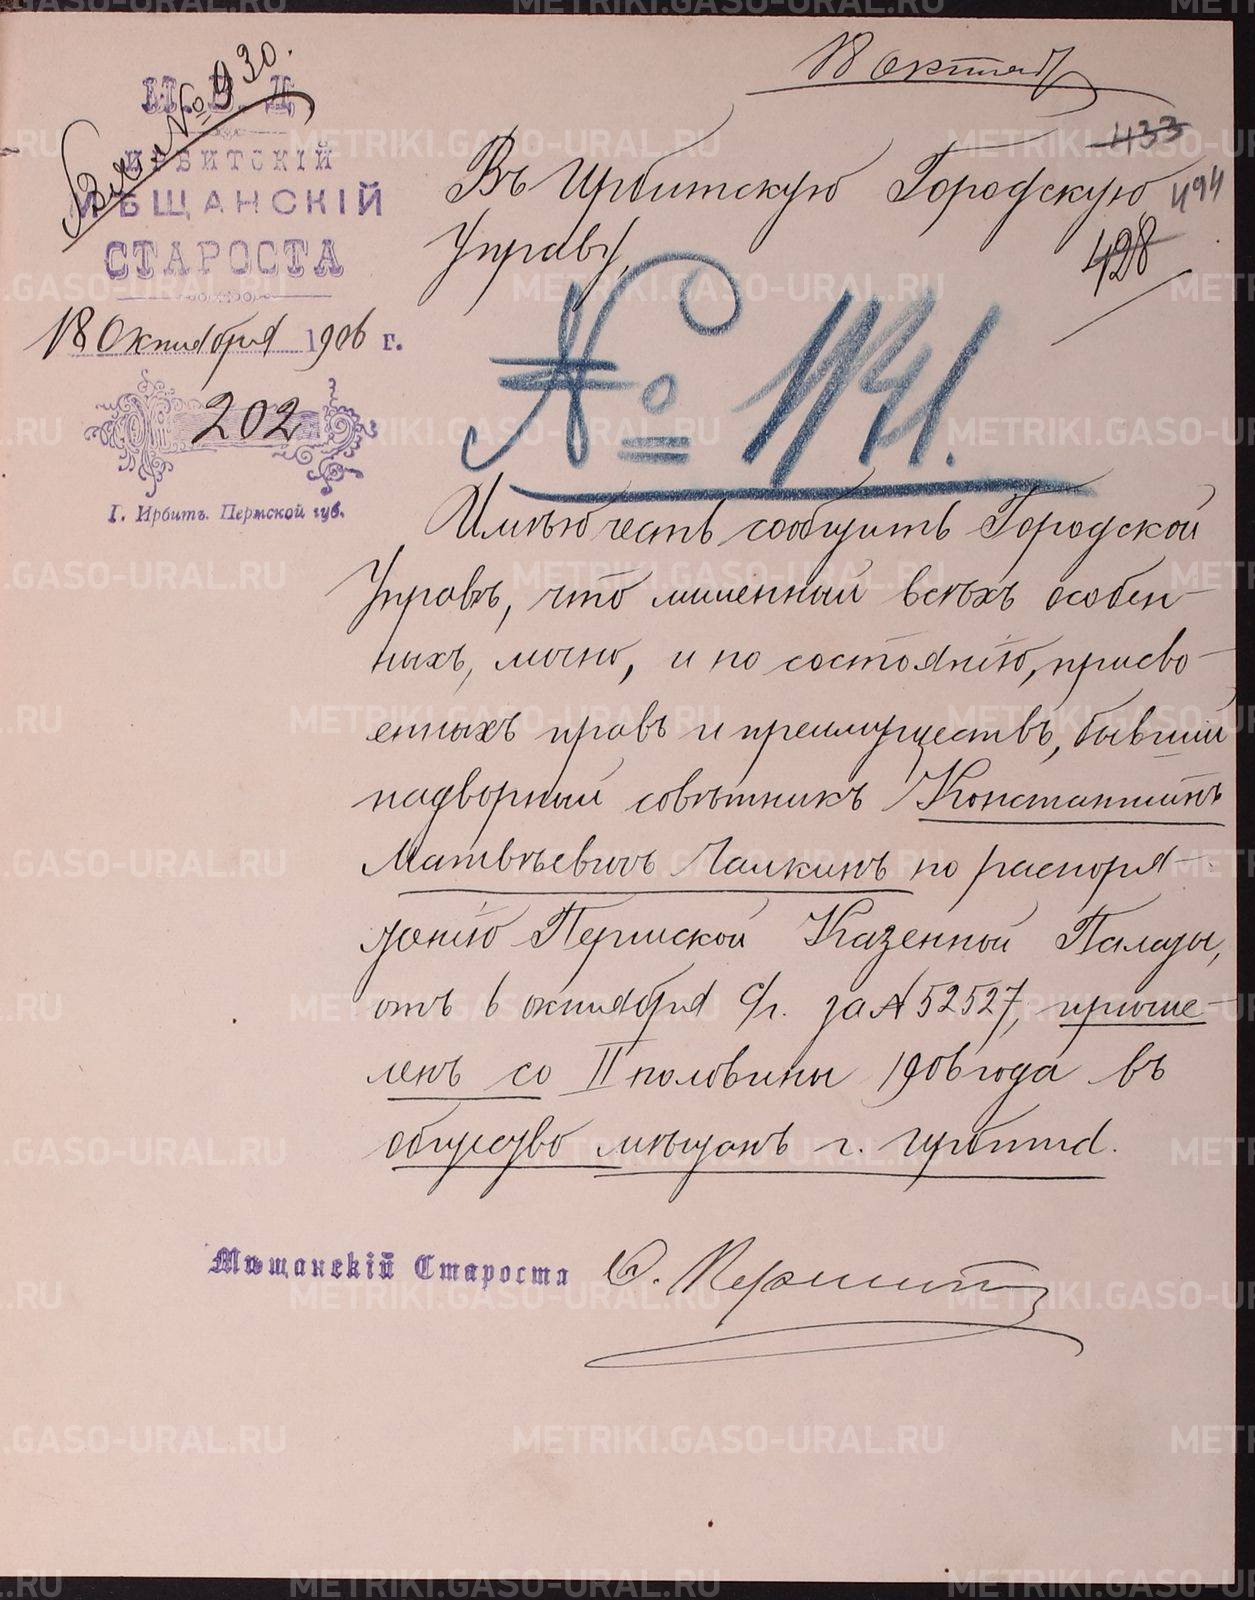 18 октяб
Вх. № 930.
М. В. Д.
ИРБИТСКІЙ
МѢЩАНСКІЙ
СТАРОСТА
18 Октября 1906 г.
202
Г. Ирбитъ. Пермской губ.
433
494
428
Въ Ирбитскую Городскую
Управу,
№ 1141.
Имѣю честь сообщить Городской
Управѣ, что лишенный всѣхъ особен-
ныхъ, лично, и по состоянію, присво-
енныхъ правъ и преимуществъ, бывшій
надворный совѣтникъ Константинъ
Матвѣевичъ Галкинъ по распоря-
женію Пермской Казенной Палаты,
отъ 6 октября с/г. за № 52527, причис-
ленъ со II половины 1906 года въ
общество мѣщанъ г. Ирбита.
Мѣщанскій Староста
METRIKI.GASO-URAL.RU